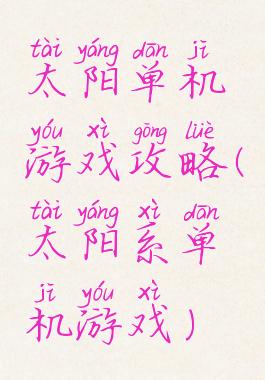 tài yáng dān jī
太阳单机
yóu xì gōng lüè
游戏攻略(
tài yáng xì dān
太阳系单
jī yóu xì
机游戏)